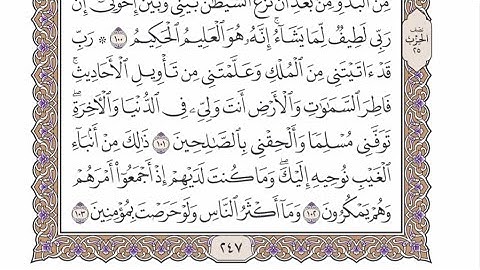 مِنَ ٱلْبَدْوِ مِنۢ بَعْدِ أَن نَّزَغَ ٱلشَّيْطَٰنُ بَيْنِى وَبَيْنَ إِخْوَتِىٓ إِنَّ
رَبِّى لَطِيفٌ لِّمَا يَشَآءُ إِنَّهُۥ هُوَ ٱلْعَلِيمُ ٱلْحَكِيمُ ١٠٠ ۞ رَبِّ
قَدْ ءَاتَيْتَنِى مِنَ ٱلْمُلْكِ وَعَلَّمْتَنِى مِن تَأْوِيلِ ٱلْأَحَادِيثِ
فَاطِرَ ٱلسَّمَٰوَٰتِ وَٱلْأَرْضِ أَنتَ وَلِىِّۦ فِى ٱلدُّنْيَا وَٱلْءَاخِرَةِ
تَوَفَّنِى مُسْلِمًا وَأَلْحِقْنِى بِٱلصَّٰلِحِينَ ١٠١ ذَٰلِكَ مِنْ أَنۢبَآءِ
ٱلْغَيْبِ نُوحِيهِ إِلَيْكَ وَمَا كُنتَ لَدَيْهِمْ إِذْ أَجْمَعُوٓا۟ أَمْرَهُمْ
وَهُمْ يَمْكُرُونَ ١٠٢ وَمَآ أَكْثَرُ ٱلنَّاسِ وَلَوْ حَرَصْتَ بِمُؤْمِنِينَ ١٠٣
نصف
الحزب
٢٥
٢٤٧